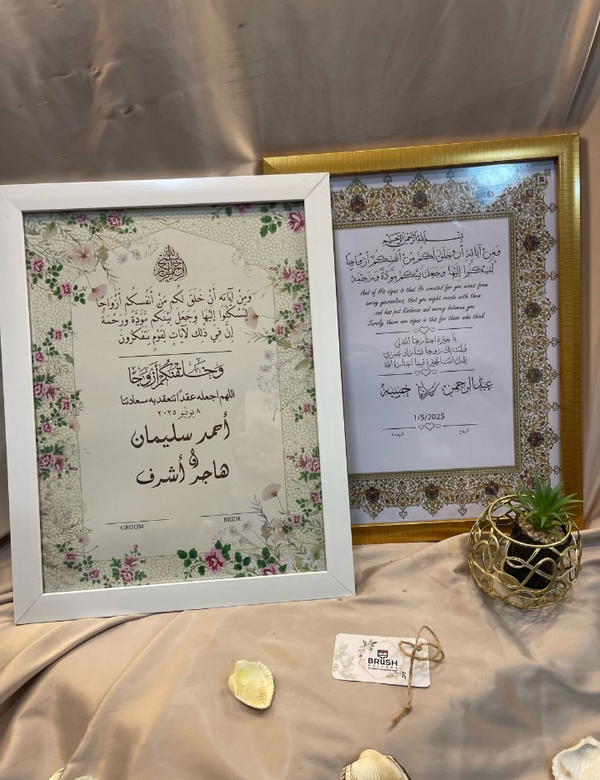 بسم الله الرحمن الرحيم
وَمِنْ آيَاتِهِ أَنْ خَلَقَ لَكُم مِّنْ أَنفُسِكُمْ أَزْوَاجًا
لِّتَسْكُنُوا إِلَيْهَا وَجَعَلَ بَيْنَكُم مَّوَدَّةً وَرَحْمَةً
إِنَّ فِي ذَلِكَ لَآيَاتٍ لِّقَوْمٍ يَتَفَكَّرُونَ
وخلقنكم أزوجا
اللهم اجعله عقدا تنعقد به سعادتنا
٨ يونيو ٢٠٢٥
أحمد سليمان
و
هاجر أشرف
GROOM BRIDE
بسم الله الرحمن الرحيم
وَمِنْ آيَاتِهِ أَنْ خَلَقَ لَكُم مِنْ أَنْفُسِكُمْ أَزْوَاجًا
لِتَسْكُنُوا إِلَيْهَا وَجَعَلَ بَيْنَكُمْ مَوَدَّةً وَرَحْمَةً
And of His signs is that He created for you mates from
among yourselves, that you might reside with them
and has put kindness and mercy between you
Surely there are signs in this for those who think
يا خيرة اختارها الله لي
عبدالرحمن حبيبة
1/5/2025
الزوج الزوجة
BRUSH